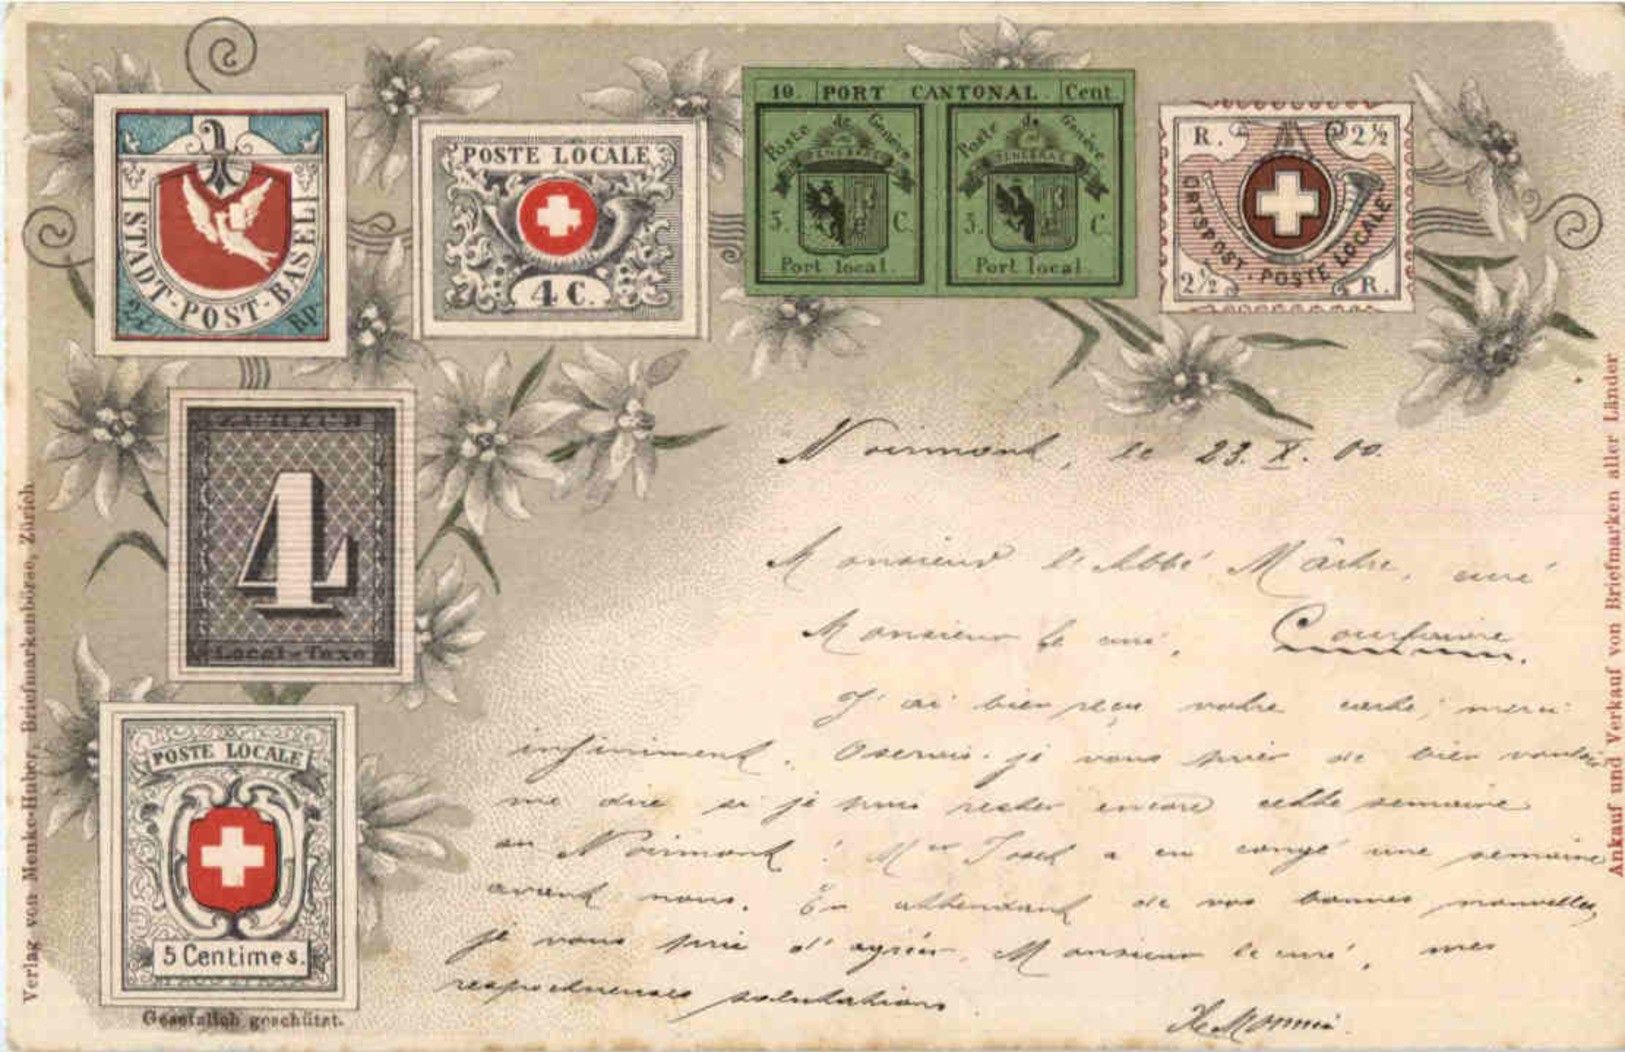 STADT-POST-BASEL
2½ Rp.
POSTE LOCALE
4 C.
10. PORT CANTONAL. Cent
Poste de Genève
POST TENEBRAS
5. C.
Port local.
Poste de Genève
5. C.
Port local.
R. 2½
ORTSPOST. POSTE LOCALE
2½ R.
ZÜRICH
4
Local-Taxe
POSTE LOCALE
5 Centimes.
Gesetzlich geschützt.
Verlag von Menke-Huber, Briefmarkenbörse, Zürich.
Ankauf und Verkauf von Briefmarken aller Länder
Noirmont, le 23. X. 00.
Monsieur l'Abbé curé
Monsieur le curé, Courfaivre.
J'ai bien reçu votre carte, merci
infiniment. Oserais-je vous prier de bien vouloir
me dire si je puis rester encore cette semaine
au Noirmont! a eu congé une semaine
avant nous. En attendant de vos bonnes nouvelles,
je vous prie d'agréer, Monsieur le curé, mes
respectueuses salutations.